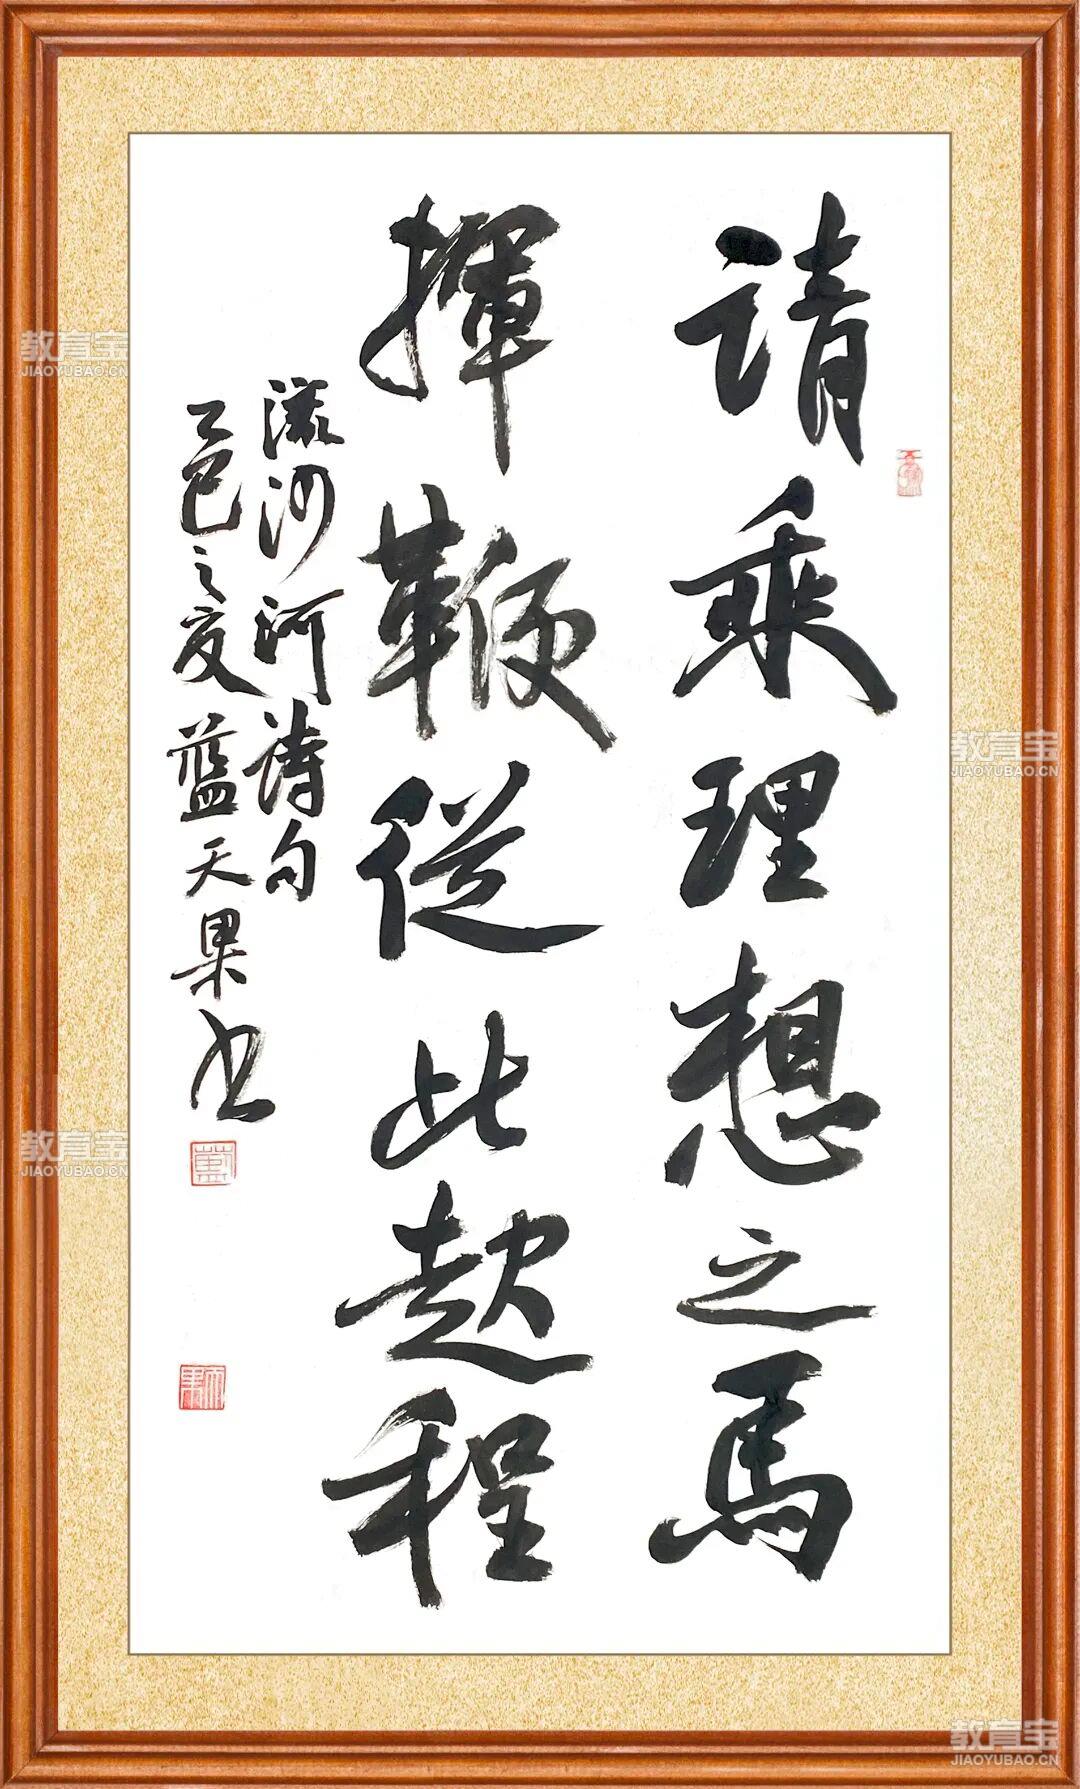 请乘理想之馬
揮鞭從此起程
流沙河诗句
乙巳之夏 藍天果书
教育宝
JIAOYUBAO.CN
教育宝
JIAOYUBAO.CN
教育宝
JIAOYUBAO.CN
教育宝
JIAOYUBAO.CN